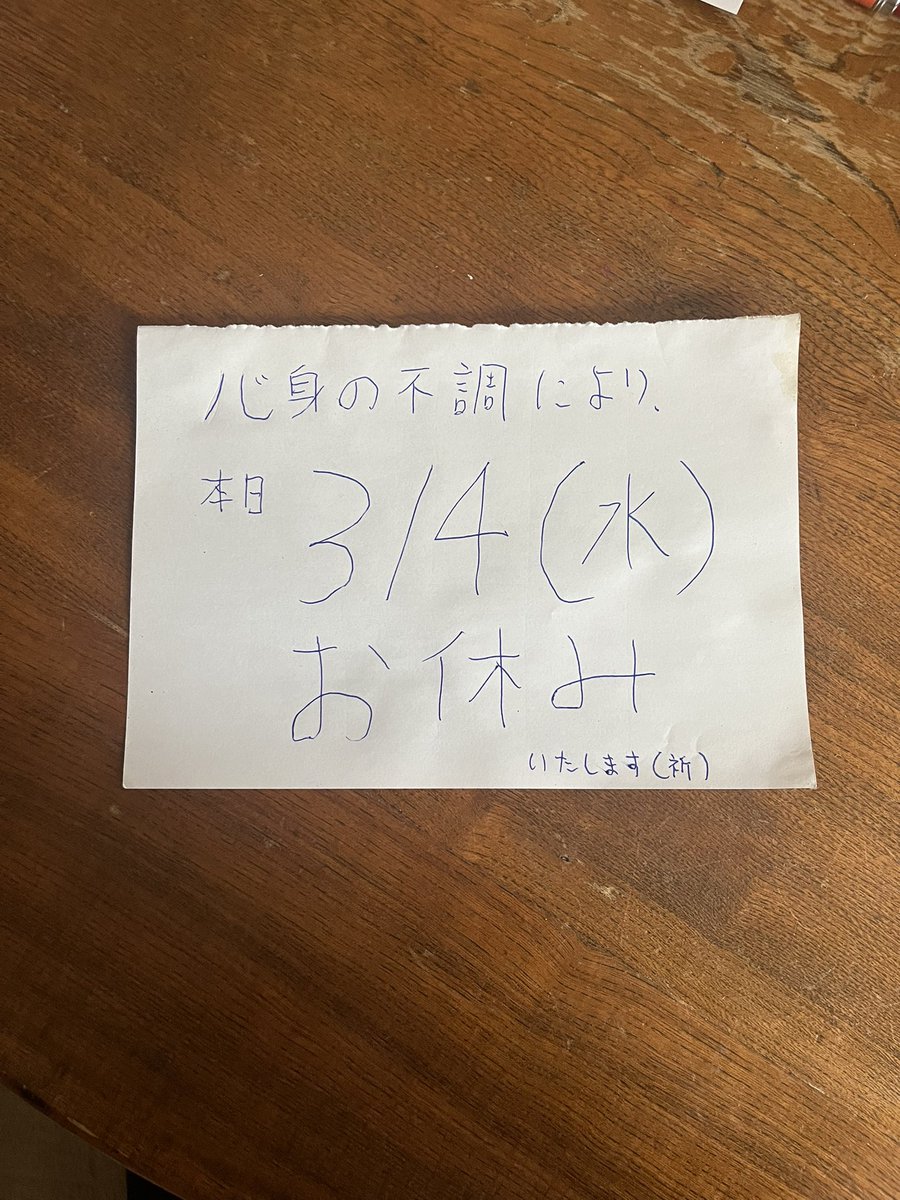 心身の不調により、
本日 3/4(水)
お休み
いたします(祈)